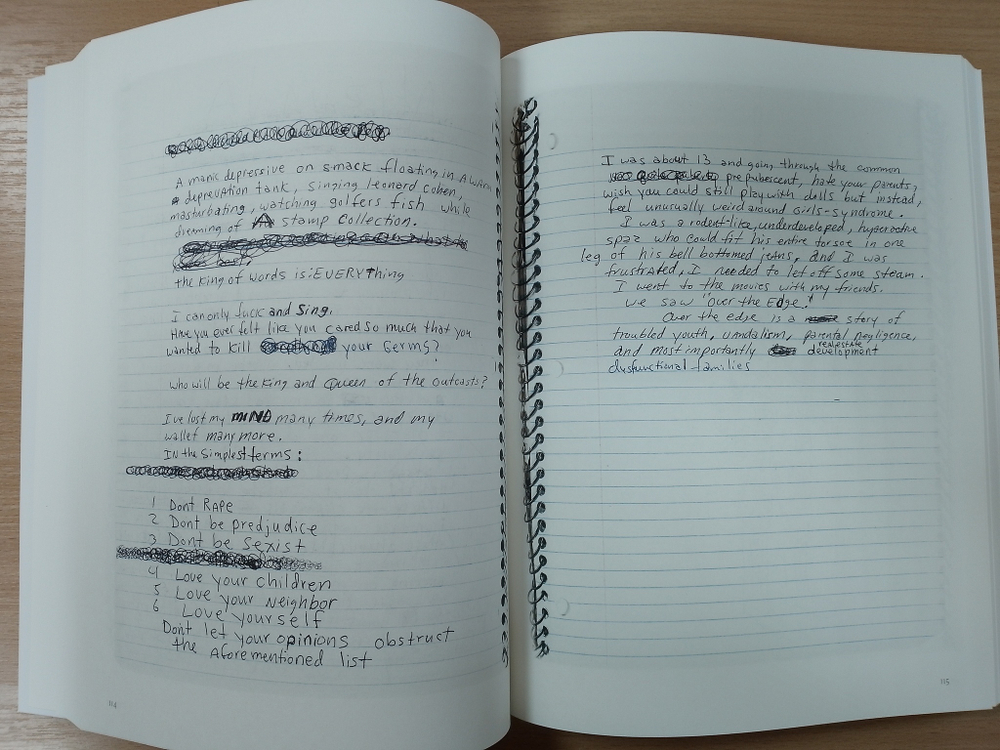 A manic depressive on smack floating in A
deprevAtion tank, singing leonard cohen,
masturbating, watching golfers fish while
dreaming of A stamp collection.
the King of words is: EVERYthing
I can only fuck and Sing.
Have you ever felt like you cared so much that you
wanted to kill your Germs?
who will be the King and Queen of the outcasts?
I've lost my MIND many times, and my
wallet many more.
IN the simplest terms:
1 Dont RAPe
2 Dont be predjudice
3 Dont be sexist
4 Love your children
5 Love your Neighbor
6 Love yourself
Dont let your opinions obstruct
the Aforementioned list
114
I was about 13 and going through the common
prepubescent, hate your parents,
wish you could still play with dolls but instead,
feel unusually weird around Girls-syndrome.
I was a rodent-like, underdeveloped, hyperactive
spaz who could fit his entire torsoe in one
leg of his bell bottomed jeans, and I was
frustrated, I needed to let off some steam.
I went to the movies with my friends.
we saw "over the Edge."
Over the edge is a story of
troubled youth, vandalism, parental negligence,
and most importantly real estate development
dysfunctional families
115